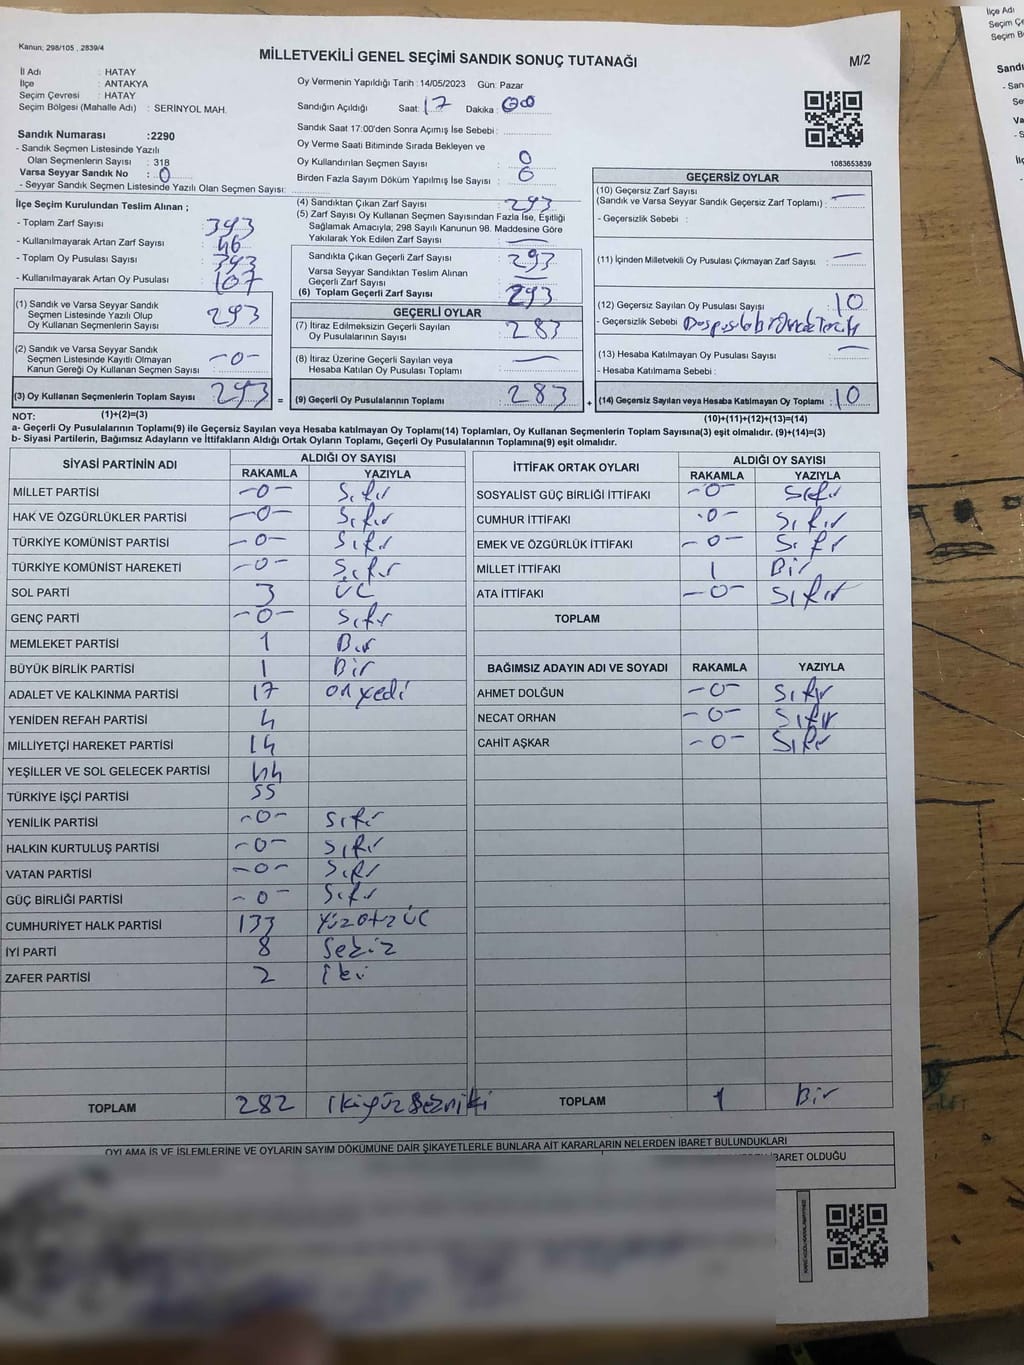 Kanun; 298/105 , 2839/4
MİLLETVEKİLİ GENEL SEÇİMİ SANDIK SONUÇ TUTANAĞI
M/2
İl Adı : HATAY
İlçe : ANTAKYA
Seçim Çevresi : HATAY
Seçim Bölgesi (Mahalle Adı) : SERİNYOL MAH.
Sandık Numarası :2290
- Sandık Seçmen Listesinde Yazılı
Olan Seçmenlerin Sayısı : 318
Varsa Seyyar Sandık No : 0
- Seyyar Sandık Seçmen Listesinde Yazılı Olan Seçmen Sayısı:
Oy Vermenin Yapıldığı Tarih : 14/05/2023 Gün: Pazar
Sandığın Açıldığı Saat: 17 Dakika : 00
Sandık Saat 17:00'den Sonra Açımış İse Sebebi :
Oy Verme Saati Bitiminde Sırada Bekleyen ve
Oy Kullandırılan Seçmen Sayısı : 0
Birden Fazla Sayım Döküm Yapılmış İse Sayısı : 0
1083653839
İlçe Seçim Kurulundan Teslim Alınan ;
- Toplam Zarf Sayısı : 393
- Kullanılmayarak Artan Zarf Sayısı : 46
- Toplam Oy Pusulası Sayısı : 393
- Kullanılmayarak Artan Oy Pusulası : 107
(1) Sandık ve Varsa Seyyar Sandık
Seçmen Listesinde Yazılı Olup
Oy Kullanan Seçmenlerin Sayısı : 293
(2) Sandık ve Varsa Seyyar Sandık
Seçmen Listesinde Kayıtlı Olmayan
Kanun Gereği Oy Kullanan Seçmen Sayısı : -0-
(3) Oy Kullanan Seçmenlerin Toplam Sayısı : 293 =
(4) Sandıktan Çıkan Zarf Sayısı : 293
(5) Zarf Sayısı Oy Kullanan Seçmen Sayısından Fazla İse, Eşitliği
Sağlamak Amacıyla; 298 Sayılı Kanunun 98. Maddesine Göre
Yakılarak Yok Edilen Zarf Sayısı : —
Sandıkta Çıkan Geçerli Zarf Sayısı : 293
Varsa Seyyar Sandıktan Teslim Alınan
Geçerli Zarf Sayısı : —
(6) Toplam Geçerli Zarf Sayısı : 293
GEÇERLİ OYLAR
(7) İtiraz Edilmeksizin Geçerli Sayılan
Oy Pusulalarının Sayısı : 283
(8) İtiraz Üzerine Geçerli Sayılan veya
Hesaba Katılan Oy Pusulası Toplamı : —
(9) Geçerli Oy Pusulalarının Toplamı : 283 +
GEÇERSİZ OYLAR
(10) Geçersiz Zarf Sayısı
(Sandık ve Varsa Seyyar Sandık Geçersiz Zarf Toplamı) : —
- Geçersizlik Sebebi :
(11) İçinden Milletvekili Oy Pusulası Çıkmayan Zarf Sayısı : —
(12) Geçersiz Sayılan Oy Pusulası Sayısı : 10
- Geçersizlik Sebebi :
(13) Hesaba Katılmayan Oy Pusulası Sayısı : —
- Hesaba Katılmama Sebebi :
(14) Geçersiz Sayılan veya Hesaba Katılmayan Oy Toplamı : 10
NOT: (1)+(2)=(3)
(10)+(11)+(12)+(13)=(14)
a- Geçerli Oy Pusulalarının Toplamı(9) ile Geçersiz Sayılan veya Hesaba katılmayan Oy Toplamı(14) Toplamları, Oy Kullanan Seçmenlerin Toplam Sayısına(3) eşit olmalıdır. (9)+(14)=(3)
b- Siyasi Partilerin, Bağımsız Adayların ve İttifakların Aldığı Ortak Oyların Toplamı, Geçerli Oy Pusulalarının Toplamına(9) eşit olmalıdır.
SİYASİ PARTİNİN ADI ALDIĞI OY SAYISI
RAKAMLA YAZIYLA
MİLLET PARTİSİ -0- Sıfır
HAK VE ÖZGÜRLÜKLER PARTİSİ -0- Sıfır
TÜRKİYE KOMÜNİST PARTİSİ -0- Sıfır
TÜRKİYE KOMÜNİST HAREKETİ -0- Sıfır
SOL PARTİ 3 ÜÇ
GENÇ PARTİ -0- Sıfır
MEMLEKET PARTİSİ 1 Bir
BÜYÜK BİRLİK PARTİSİ 1 Bir
ADALET VE KALKINMA PARTİSİ 17 on yedi
YENİDEN REFAH PARTİSİ 4
MİLLİYETÇİ HAREKET PARTİSİ 14
YEŞİLLER VE SOL GELECEK PARTİSİ 44
TÜRKİYE İŞÇİ PARTİSİ 55
YENİLİK PARTİSİ -0- Sıfır
HALKIN KURTULUŞ PARTİSİ -0- Sıfır
VATAN PARTİSİ -0- Sıfır
GÜÇ BİRLİĞİ PARTİSİ -0- Sıfır
CUMHURİYET HALK PARTİSİ 133 Yüzotzüç
İYİ PARTİ 8 Sekiz
ZAFER PARTİSİ 2 İki
TOPLAM 282
İTTİFAK ORTAK OYLARI ALDIĞI OY SAYISI
RAKAMLA YAZIYLA
SOSYALİST GÜÇ BİRLİĞİ İTTİFAKI -0- Sıfır
CUMHUR İTTİFAKI -0- Sıfır
EMEK VE ÖZGÜRLÜK İTTİFAKI -0- Sıfır
MİLLET İTTİFAKI 1 Bir
ATA İTTİFAKI -0- Sıfır
TOPLAM
BAĞIMSIZ ADAYIN ADI VE SOYADI RAKAMLA YAZIYLA
AHMET DOLĞUN -0- Sıfır
NECAT ORHAN -0- Sıfır
CAHİT AŞKAR -0- Sıfır
TOPLAM 1 Bir
OYLAMA İŞ VE İŞLEMLERİNE VE OYLARIN SAYIM DÖKÜMÜNE DAİR ŞİKAYETLERLE BUNLARA AİT KARARLARIN NELERDEN İBARET BULUNDUKLARI
İBARET OLDUĞU